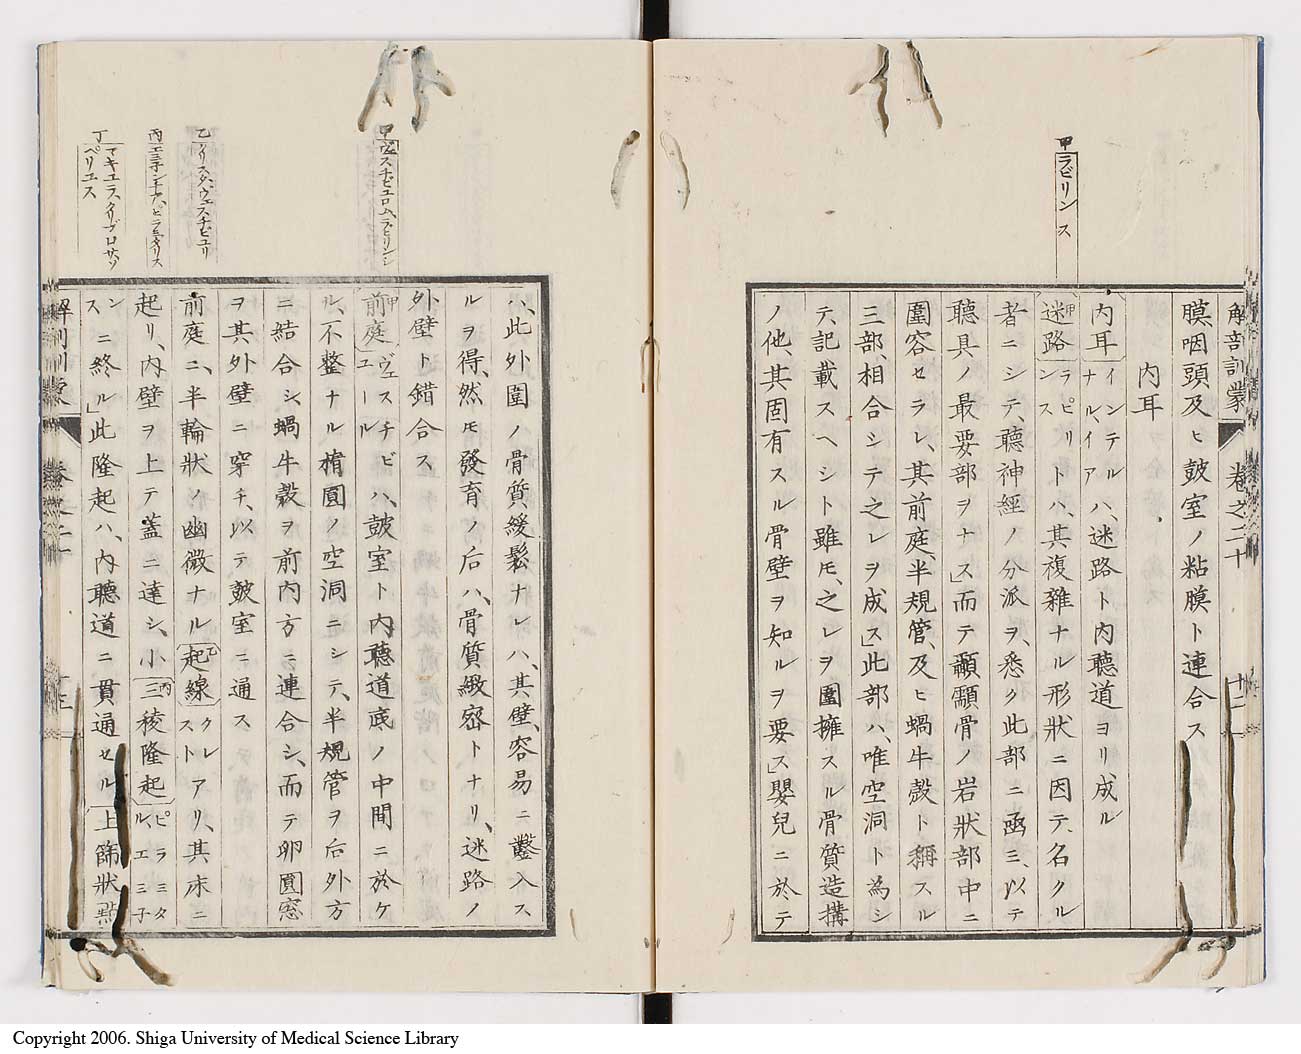 解剖訓蒙 卷之二十
十二
甲ラビリンス
膜咽頭及ヒ鼓室ノ粘膜ト連合ス
内耳
内耳インテルナル、イアハ、迷路ト内聽道ヨリ、成ル
甲迷路ラピリンストハ、其複雜ナル形狀ニ因テ、名クル
者ニシテ、聽神經ノ分派ヲ、悉ク此部ニ函ミ、以テ
聽具ノ最要部ヲナス」而テ顳顬骨ノ岩狀部中ニ
圍容セラレ、其前庭、半規管、及ヒ蝸牛殼ト稱スル
三部、相合シテ之レヲ成ス」此部ハ、唯空洞ト為シ
テ、記載スヘシト雖モ、之レヲ圍擁スル骨質造搆
ノ他、其固有スル骨壁ヲ知ルヲ要ス」嬰兒ニ於テ
甲ヴェスチビュロム、ラビリンシ
乙クリスタ、ヴェスチビュリ
丙エミネンチア、ピラミダリス
丁マキュラ、クリブロサ、ソペリエス
ハ、此外圍ノ骨質緩鬆ナレハ、其壁、容易ニ鑿入ス
ルヲ得、然モ發育ノ后ハ、骨質緻密トナリ、迷路ノ
外壁ト錯合ス
甲前庭ヴェスチビユールハ、鼓室ト内聽道底ノ中間ニ於ケ
ル、不整ナル楕圓ノ空洞ニシテ、半規管ヲ后外方
ニ結合シ、蝸牛殼ヲ前内方ニ連合シ、而テ卵圓窓
ヲ其外壁ニ穿チ、以テ鼓室ニ通ス
前庭ニ、半輪狀ノ幽微ナル乙起線クレストアリ、其床ニ
起リ、内壁ヲ上テ蓋ニ達シ、小丙三稜隆起ピラミタル、エミ子
ンスニ終ル」此隆起ハ、内聽道ニ貫通セル丁上篩狀點
解剖訓蒙 卷之二十
十三
Copyright 2006. Shiga University of Medical Science Library